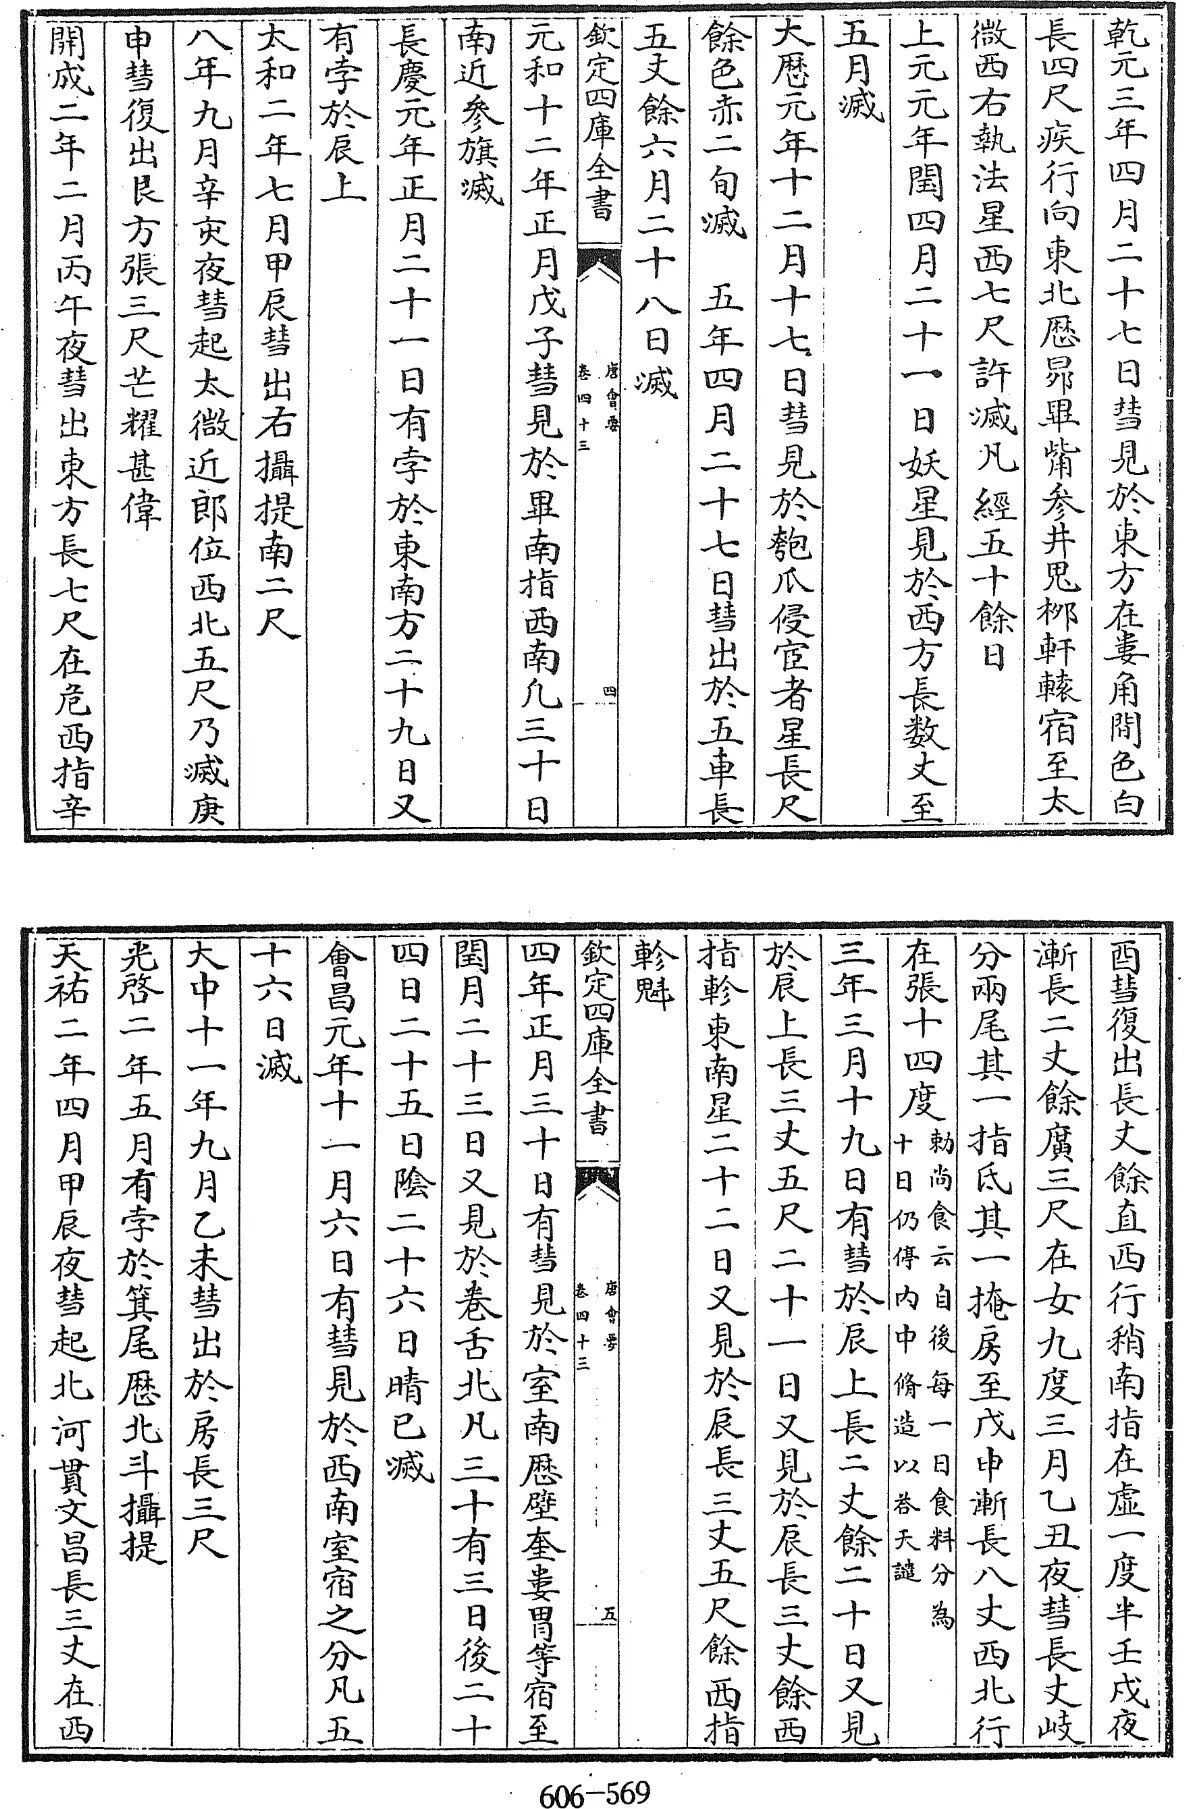 乾元三年四月二十七日彗見於東方在婁角間色白
長四尺疾行向東北歴昴畢觜參井鬼栁軒轅宿至太
微西右執法星西七尺許滅凡經五十餘日
上元元年閏四月二十一日妖星見於西方長数丈至
五月滅
大歴元年十二月十七日彗見於匏瓜侵宦者星長尺
餘色赤二旬滅　五年四月二十七日彗出於五車長
五丈餘六月二十八日滅
欽定四庫全書
唐會要
卷四十三
四
元和十二年正月戊子彗見於畢南指西南凢三十日
南近參旗滅
長慶元年正月二十一日有孛於東南方二十九日又
有孛於辰上
太和二年七月甲辰彗出右攝提南二尺
八年九月辛亥夜彗起太微近郎位西北五尺乃滅庚
申彗復出艮方張三尺芒耀甚偉
開成二年二月丙午夜彗出東方長七尺在危西指辛
酉彗復出長丈餘直西行稍南指在虛一度半壬戌夜
漸長二丈餘廣三尺在女九度三月乙丑夜彗長丈岐
分兩尾其一指氐其一掩房至戊申漸長八丈西北行
在張十四度
勅尚食云自後每一日食料分為
十日仍停内中脩造以荅天譴
三年三月十九日有彗於辰上長二丈餘二十日又見
於辰上長三丈五尺二十一日又見於辰長三丈餘西
指軫東南星二十二日又見於辰長三丈五尺餘西指
軫魁
欽定四庫全書
唐會要
卷四十三
五
四年正月三十日有彗見於室南歴壁奎婁胃等宿至
閏月二十三日又見於卷舌北凡三十有三日後二十
四日二十五日陰二十六日晴已滅
會昌元年十一月六日有彗見於西南室宿之分凡五
十六日滅
大中十一年九月乙未彗出於房長三尺
光啓二年五月有孛於箕尾歴北斗攝提
天祐二年四月甲辰夜彗起北河貫文昌長三丈在西
606-569